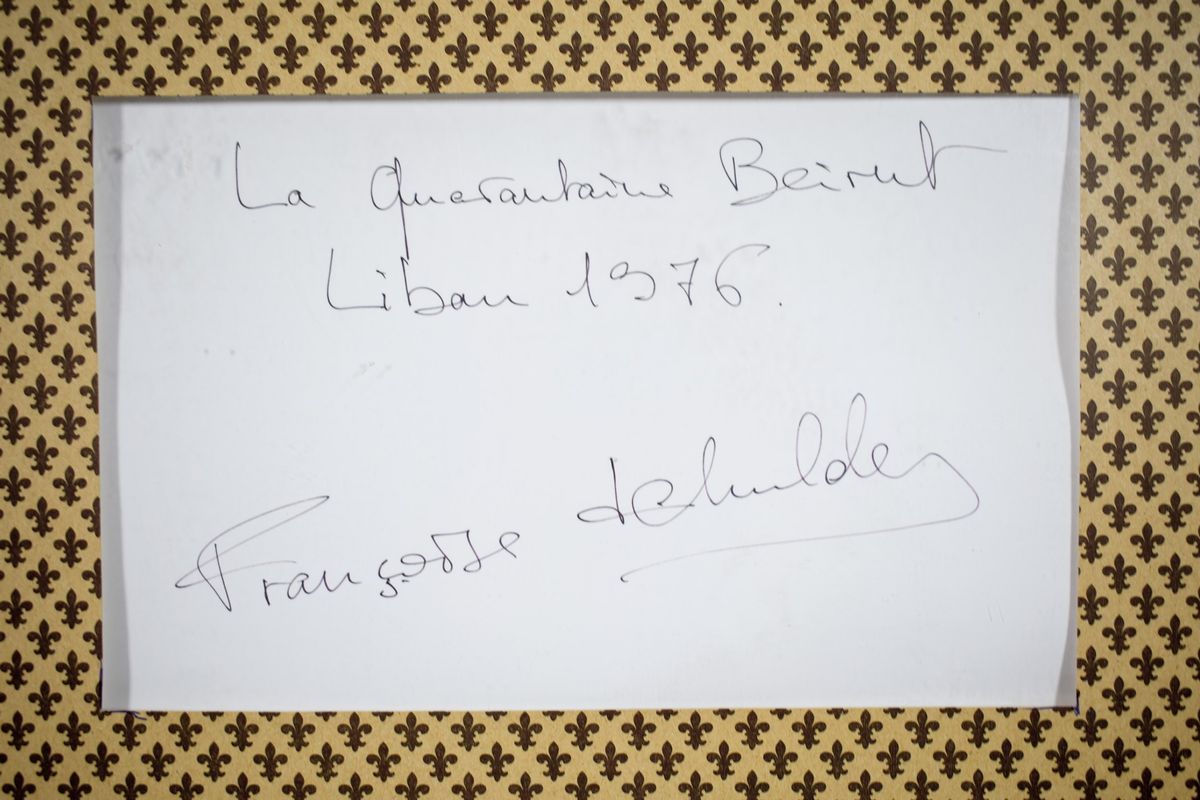 La Quarantaine Beirut
Liban 1976.
Françoise Demulder